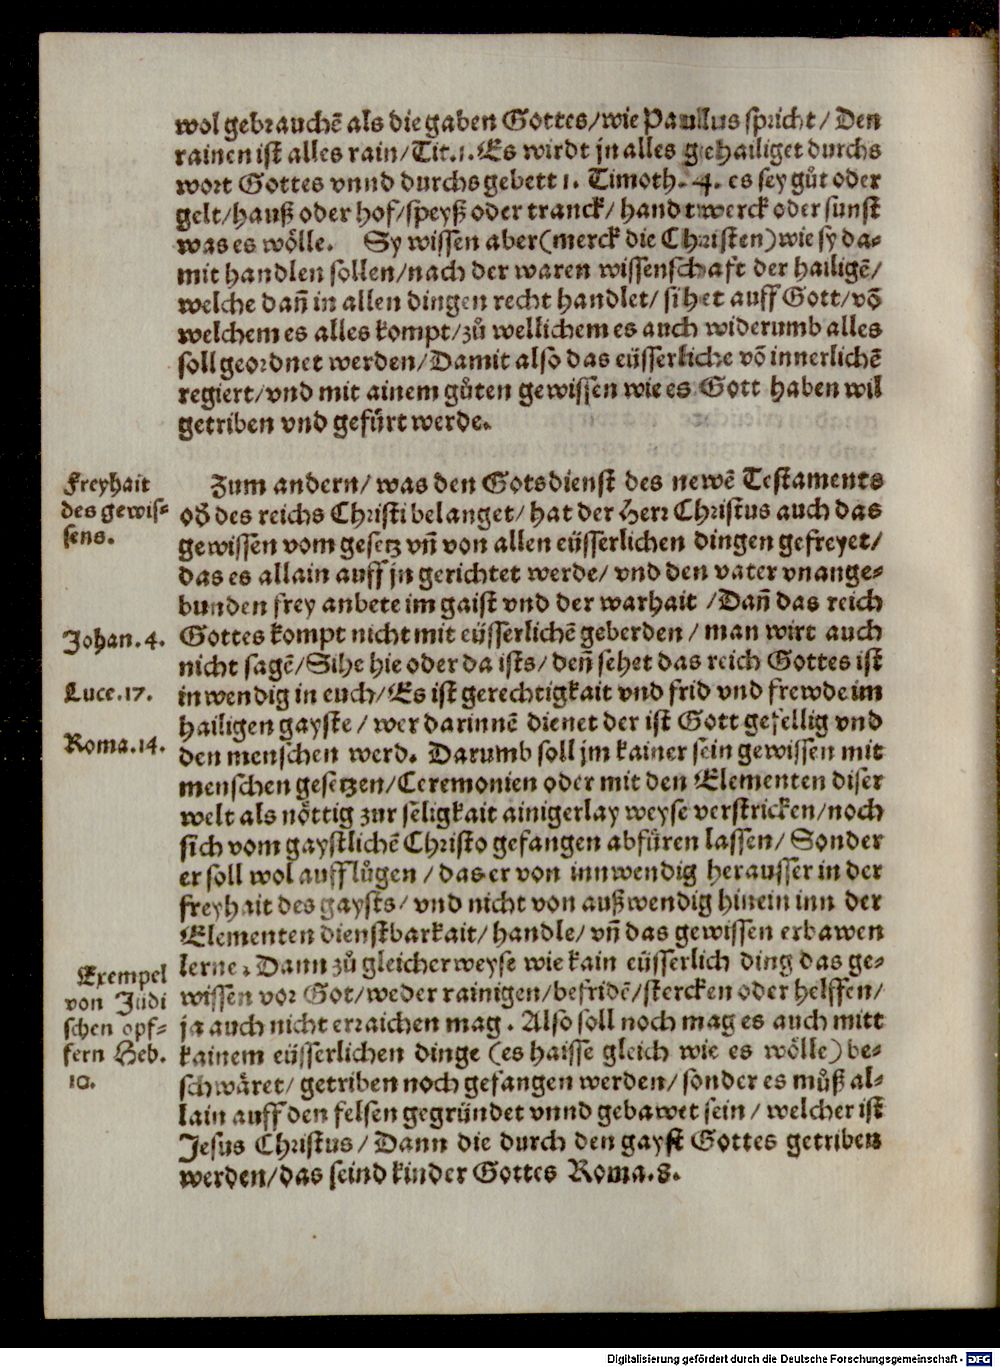 wol gebrauchē als die gaben Gottes/wie Paullus spricht/Den
rainen ist alles rain/Tit.1. Es wirdt jn alles gehailiget durchs
wort Gottes vnnd durchs gebett 1. Timoth. 4. es sey gůt oder
gelt/hauß oder hof/speyß oder tranck/handtwerck oder sunst
was es wölle. Sy wissen aber (merck die Christen) wie sy da-
mit handlen sollen/nach der waren wissenschaft der hailigē/
welche dañ in allen dingen recht handlet/sihet auff Gott/vō
welchem es alles kompt/zů wellichem es auch widerumb alles
soll geordnet werden/Damit also das eüsserliche vō innerlichē
regiert/vnd mit ainem gůten gewissen wie es Gott haben wil
getriben vnd gefürt werde.
Freyhait
des gewis-
sens.
Zum andern/was den Gotsdienst des newē Testaments
oď des reichs Christi belanget/hat der Herr Christus auch das
gewissen vom gesetz vñ von allen eüsserlichen dingen gefreyet/
das es allain auff jn gerichtet werde/vnd den vater vnange-
bunden frey anbete im gaist vnd der warhait/Dañ das reich
Johan. 4.
Gottes kompt nicht mit eüsserlichē geberden/man wirt auch
nicht sagē/Sihe hie oder da ists/deñ sehet das reich Gottes ist
Luce.17.
inwendig in euch/Es ist gerechtigkait vnd frid vnd frewde im
hailigen gayste/wer darinnē dienet der ist Gott gefellig vnd
Roma.14.
den menschen werd. Darumb soll jm kainer sein gewissen mit
menschen gesetzen/Ceremonien oder mit den Elementen diser
welt als nöttig zur seligkait ainigerlay weyse verstricken/noch
sich vom gaystlichē Christo gefangen abfüren lassen/Sonder
er soll wol aufflůgen/das er von innwendig herausser in der
freyhait des gaysts/vnd nicht von außwendig hinein inn der
Elementen dienstbarkait/handle/vñ das gewissen erbawen
lerne. Dann zů gleicher weyse wie kain eüsserlich ding das ge-
Exempel
von Jüdi
schen opf-
fern Heb.
10.
wissen vor Got/weder rainigen/befridē/stercken oder helffen/
ja auch nicht erraichen mag. Also soll noch mag es auch mitt
kainem eüsserlichen dinge (es haisse gleich wie es wölle) be-
schwäret/getriben noch gefangen werden/sonder es můß al-
lain auff den felsen gegründet vnnd gebawet sein/welcher ist
Jesus Christus/Dann die durch den gayst Gottes getriben
werden/das seind kinder Gottes Roma.8.
Digitalisierung gefördert durch die Deutsche Forschungsgemeinschaft - DFG